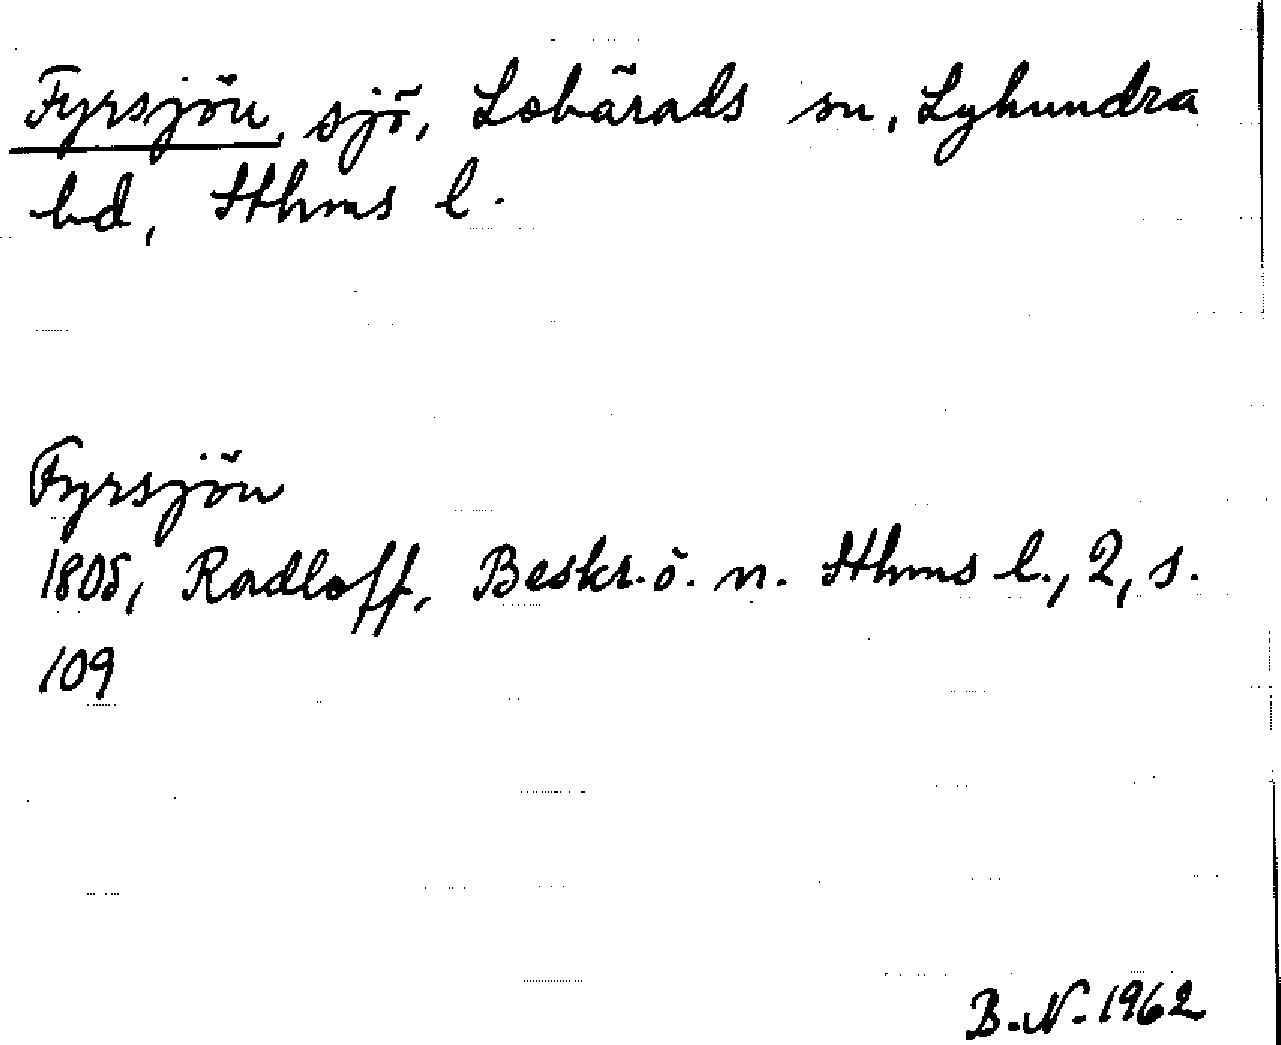 Fyrsjön, sjö, Lohärads sn, Lyhundra
hd, Sthms l.
Fyrsjön
1805, Radloff, Beskr. ö. n. Sthms l., 2, s.
109
B.N. 1962